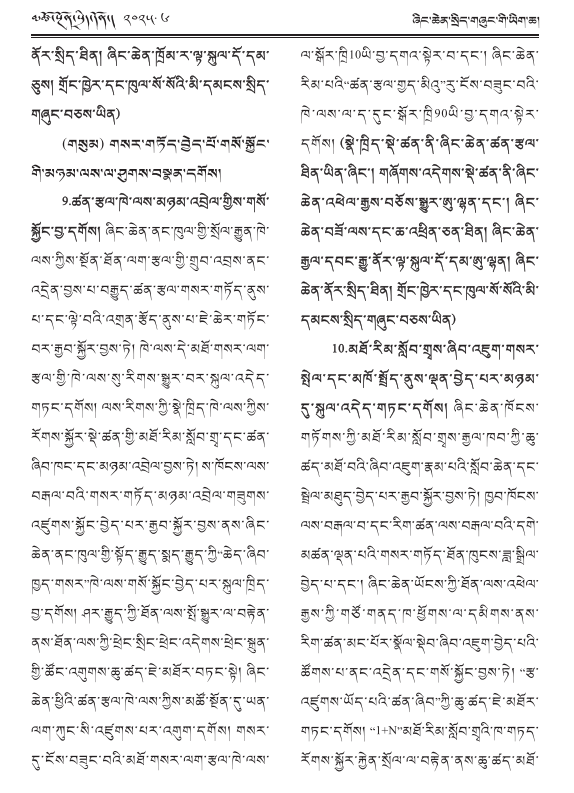 མཚོ་སྔོན་ཞིང་ཆེན། ༢༠༢༥·༦
ཞིང་ཆེན་སྲིད་གཞུང་གི་ཡིག་ཆ།
ནོར་སྲིད་ཐིན། ཞིང་ཆེན་ཁྲོམ་ར་ལྟ་སྐུལ་དོ་དམ་
ཅུས། གྲོང་ཁྱེར་དང་ཁུལ་སོ་སོའི་མི་དམངས་སྲིད་
གཞུང་བཅས་ཡིན)
(གསུམ) གསར་གཏོད་བྱེད་པོ་གསོ་སྐྱོང་
གི་མཉམ་ལས་ལ་ཤུགས་བསྣན་དགོས།
9.ཚན་རྩལ་ཁེ་ལས་མཉམ་འབྲེལ་གྱིས་གསོ་
སྐྱོང་བྱ་དགོས། ཞིང་ཆེན་ནང་ཁུལ་གྱི་སྲོལ་རྒྱུན་ཁེ་
ལས་ཀྱིས་སྔོན་ཐོན་ལག་རྩལ་གྱི་གྲུབ་འབྲས་ནང་
འདྲེན་བྱས་པ་བརྒྱུད་ཚན་རྩལ་གསར་གཏོད་ནུས་
པ་དང་ལྟེ་བའི་འགྲན་རྩོད་ནུས་པ་ཇེ་ཆེར་གཏོང་
བར་རྒྱབ་སྐྱོར་བྱས་ཏེ། ཁེ་ལས་དེ་མཐོ་གསར་ལག་
རྩལ་གྱི་ཁེ་ལས་སུ་རིགས་སྒྱུར་བར་སྐུལ་འདེད་
གཏང་དགོས། ལས་རིགས་ཀྱི་སྣེ་ཁྲིད་ཁེ་ལས་ཀྱིས་
རོགས་སྐྱོར་སྡེ་ཚན་གྱི་མཐོ་རིམ་སློབ་གྲྭ་དང་ཚན་
ཞིབ་ཁང་དང་མཉམ་འབྲེལ་བྱས་ཏེ། ས་ཁོངས་ལས་
བརྒལ་བའི་གསར་གཏོད་མཉམ་འབྲེལ་གཟུགས་
འཛུགས་སྐྱོང་བྱེད་པར་རྒྱབ་སྐྱོར་བྱས་ནས་ཞིང་
ཆེན་ནང་ཁུལ་གྱི་སྟོད་རྒྱུད་སྨད་རྒྱུད་ཀྱི“ཆེད་ཞིབ་
ཁྱད་གསར”ཁེ་ལས་གསོ་སྐྱོང་བྱེད་པར་སྐུལ་ཁྲིད་
བྱ་དགོས། ཤར་རྒྱུད་ཀྱི་ཐོན་ལས་སྤོ་སྒྱུར་ལ་བརྟེན་
ནས་ཐོན་ལས་ཀྱི་ཕྲེང་སྲིང་ཕྲེང་འདེགས་ཕྲེང་སྐྲུན་
གྱི་ཚོང་འགུགས་ཆུ་ཚད་ཇེ་མཐོར་བཏང་སྟེ། ཞིང་
ཆེན་ཕྱིའི་ཚན་རྩལ་ཁེ་ལས་ཀྱིས་མཚོ་སྔོན་དུ་ཡན་
ལག་ཀུང་སི་འཛུགས་པར་འགུག་དགོས། གསར་
དུ་ངོས་བཟུང་བའི་མཐོ་གསར་ལག་རྩལ་ཁེ་ལས་
ལ་སྒོར་ཁྲི10ཡི་བྱ་དགའ་སྟེར་བ་དང་། ཞིང་ཆེན་
རིམ་པའི“ཚན་རྩལ་གྱད་མིའུ”རུ་ངོས་བཟུང་བའི་
ཁེ་ལས་ལ་ད་དུང་སྒོར་ཁྲི90ཡི་བྱ་དགའ་སྟེར་
དགོས། (སྣེ་ཁྲིད་སྡེ་ཚན་ནི་ཞིང་ཆེན་ཚན་རྩལ་
ཐིན་ཡིན་ཞིང་། གཞོགས་འདེགས་སྡེ་ཚན་ནི་ཞིང་
ཆེན་འཕེལ་རྒྱས་བཅོས་སྒྱུར་ཨུ་ལྷན་དང་། ཞིང་
ཆེན་བཟོ་ལས་དང་ཆ་འཕྲིན་ཅན་ཐིན། ཞིང་ཆེན་
རྒྱལ་དབང་རྒྱུ་ནོར་ལྟ་སྐུལ་དོ་དམ་ཨུ་ལྷན། ཞིང་
ཆེན་ནོར་སྲིད་ཐིན། གྲོང་ཁྱེར་དང་ཁུལ་སོ་སོའི་མི་
དམངས་སྲིད་གཞུང་བཅས་ཡིན)
10.མཐོ་རིམ་སློབ་གྲྭས་ཞིབ་འཇུག་གསར་
སྤེལ་དང་མཁོ་སྤྲོད་ནུས་ལྡན་བྱེད་པར་མཉམ་
དུ་སྐུལ་འདེད་གཏང་དགོས། ཞིང་ཆེན་ཁོངས་
གཏོགས་ཀྱི་མཐོ་རིམ་སློབ་གྲྭས་རྒྱལ་ཁབ་ཀྱི་ཆུ་
ཚད་མཐོ་བའི་ཞིབ་འཇུག་རྣམ་པའི་སློབ་ཆེན་དང་
སྦྲེལ་མཐུད་བྱེད་པར་རྒྱབ་སྐྱོར་བྱས་ཏེ། ཁྱབ་ཁོངས་
ལས་བརྒལ་བ་དང་རིག་ཚན་ལས་བརྒལ་བའི་དགེ་
མཚན་ལྡན་པའི་གསར་གཏོད་ཐོན་ཁུངས་ཟླ་སྒྲིལ་
བྱེད་པ་དང་། ཞིང་ཆེན་ཡོངས་ཀྱི་ཐོན་ལས་འཕེལ་
རྒྱས་ཀྱི་གཙོ་གནད་ཁ་ཕྱོགས་ལ་དམིགས་ནས་
རིག་ཚན་མང་པོར་སྣོལ་སྡེབ་ཞིབ་འཇུག་བྱེད་པའི་
ཚོགས་པ་ནང་འདྲེན་དང་གསོ་སྐྱོང་བྱས་ཏེ། “རྩ་
འཛུགས་ཡོད་པའི་ཚན་ཞིབ”ཀྱི་ཆུ་ཚད་ཇེ་མཐོར་
གཏང་དགོས། “1+N”མཐོ་རིམ་སློབ་གྲྭའི་ཁ་གཏད་
རོགས་སྐྱོར་རྐྱེན་སྲོལ་ལ་བརྟེན་ནས་ཆུ་ཚད་མཐོ་